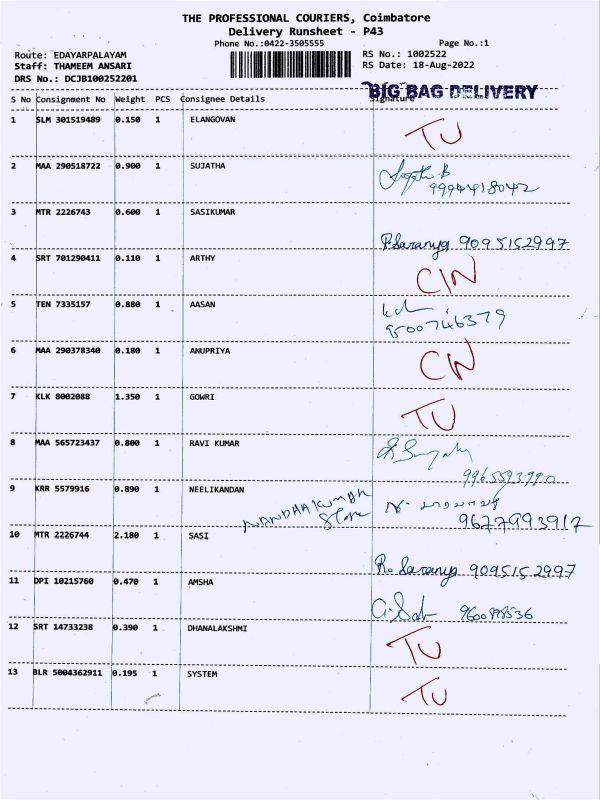 THE PROFESSIONAL COURIERS, Coimbatore
Delivery Runsheet - P43
Phone No.:0422-3505555 Page No.:1
Route: EDAYARPALAYAM RS No.: 1002522
Staff: THAMEEM ANSARI RS Date: 18-Aug-2022
DRS No.: DCJB100252201
BIG BAG DELIVERY
S No Consignment No Weight PCS Consignee Details Signature
1 SLM 301519489 0.150 1 ELANGOVAN TU
2 MAA 290518722 0.900 1 SUJATHA
9994418042
3 MTR 2226743 0.600 1 SASIKUMAR
P.Saranya 9095152997
4 SRT 701290411 0.110 1 ARTHY CIN
5 TEN 7335157 0.880 1 AASAN
9500746379
6 MAA 290378340 0.180 1 ANUPRIYA CIN
7 KLK 8002088 1.350 1 GOWRI TU
8 MAA 565723437 0.800 1 RAVI KUMAR
9965593990
9 KRR 5579916 0.890 1 NEELIKANDAN
NANDHAKUMAR
Store 9677993917
10 MTR 2226744 2.180 1 SASI
R. Saranya 9095152997
11 DPI 10215760 0.470 1 AMSHA
12 SRT 14733238 0.390 1 DHANALAKSHMI TU
13 BLR 5004362911 0.195 1 SYSTEM TU